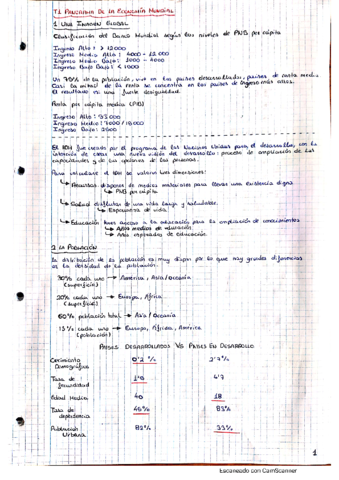 T.1 PANORAMA DE LA ECONOMÍA MUNDIAL
1 UNA IMAGEN GLOBAL
Clasificación del Banco Mundial según los niveles de PNB per cápita
Ingreso Alto: > 12000
Ingreso Medio Alto: 4000 - 12.000
Ingreso Medio Bajo: 1000 - 4000
Ingreso Bajo: < 1000
Un 75% de la población, vive en los países desarrollados, países de renta media
Casi la mitad de la renta se concentra en los países de ingreso más altos.
El resultado es una fuerte desigualdad.
Renta per cápita media (PNB)
Ingreso Alto: 45000
Ingreso Medio: 7000/18.000
Ingreso Bajo: 2600
El IDH fue creado por el programa de las Naciones Unidas para el desarrollo, con la
intención de crear una nueva visión del desarrollo: proceso de ampliación de las
capacidades y de las opciones de las personas.
Para calcular el IDH se valoran tres dimensiones:
↳ Recursos disponer de medios materiales para llevar una existencia digna
↳ PNB per cápita
↳ Salud disfrutar de una vida larga y saludable.
↳ Esperanza de vida.
↳ Educación tener acceso a la educación para la ampliación de conocimientos
↳ Años medios de educación.
↳ Años esperados de educación.
2 LA POBLACIÓN
La distribución de la población es muy dispar por lo que hay grandes diferencias
en la densidad de la población.
30% cada uno → América, Asia/Oceanía
(superficie)
20% cada uno → Europa, África
(superficie)
60% población total → Asia/Oceanía
13% cada uno → Europa, África, América
(población)
PAISES DESARROLLADOS VS PAISES EN DESARROLLO
Crecimiento 0'2% 2'7%
Demográfico
Tasa de
fecundidad
Edad Media 40 18
Tasa de 40% 83%
dependencia
Población 82% 33%
Urbana
1
Escaneado con CamScanner